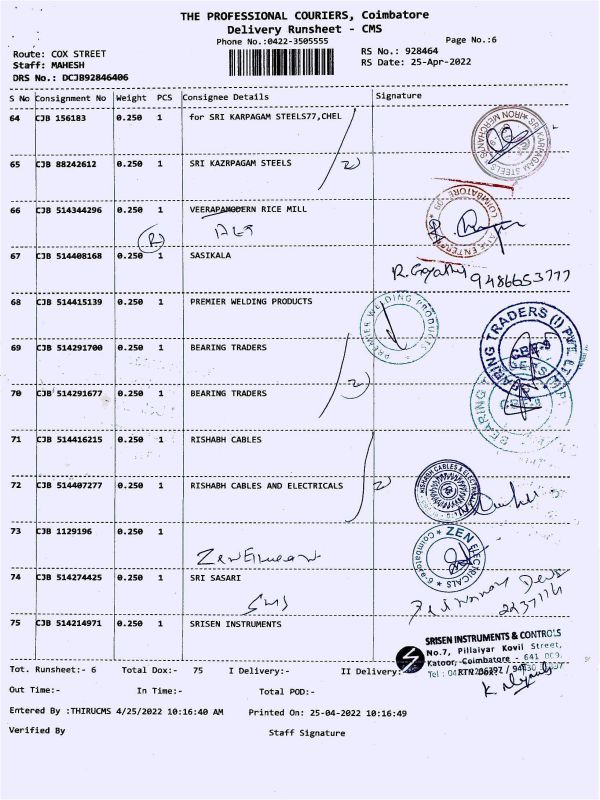 THE PROFESSIONAL COURIERS, Coimbatore
Delivery Runsheet - CMS
Phone No.:0422-3505555
Page No.:6
Route: COX STREET
RS No.: 928464
Staff: MAHESH
RS Date: 25-Apr-2022
DRS No.: DCJB92846406
S No Consignment No Weight PCS Consignee Details Signature
64 CJB 156183 0.250 1 for SRI KARPAGAM STEELS77,CHEL
SRI KARPAGAM STEELS
65 CJB 88242612 0.250 1 SRI KAZRPAGAM STEELS
2
66 CJB 514344296 0.250 1 VEERAPAMODERN RICE MILL
COIMBATORE
67 CJB 514408168 0.250 1 SASIKALA
9486653777
68 CJB 514415139 0.250 1 PREMIER WELDING PRODUCTS
PREMIER WELDING PRODUCTS
69 CJB 514291700 0.250 1 BEARING TRADERS
BEARING TRADERS (I) PVT LTD
CBE-9
70 CJB 514291677 0.250 1 BEARING TRADERS
2
BEARING
CBE-9
71 CJB 514416215 0.250 1 RISHABH CABLES
72 CJB 514407277 0.250 1 RISHABH CABLES AND ELECTRICALS
2
RISHABH CABLES & ELECTRICALS
73 CJB 1129196 0.250 1
ZEN ELECTRICALS
Coimbatore-9
74 CJB 514274425 0.250 1 SRI SASARI
75 CJB 514214971 0.250 1 SRISEN INSTRUMENTS
SRISEN INSTRUMENTS & CONTROLS
No.7, Pillaiyar Kovil Street,
Katoor, Coimbatore - 641 009.
Tot. Runsheet:- 6 Total Dox:- 75 I Delivery:- II Delivery:-
Out Time:- In Time:- Total POD:-
Entered By :THIRUCMS 4/25/2022 10:16:40 AM Printed On: 25-04-2022 10:16:49
Verified By Staff Signature